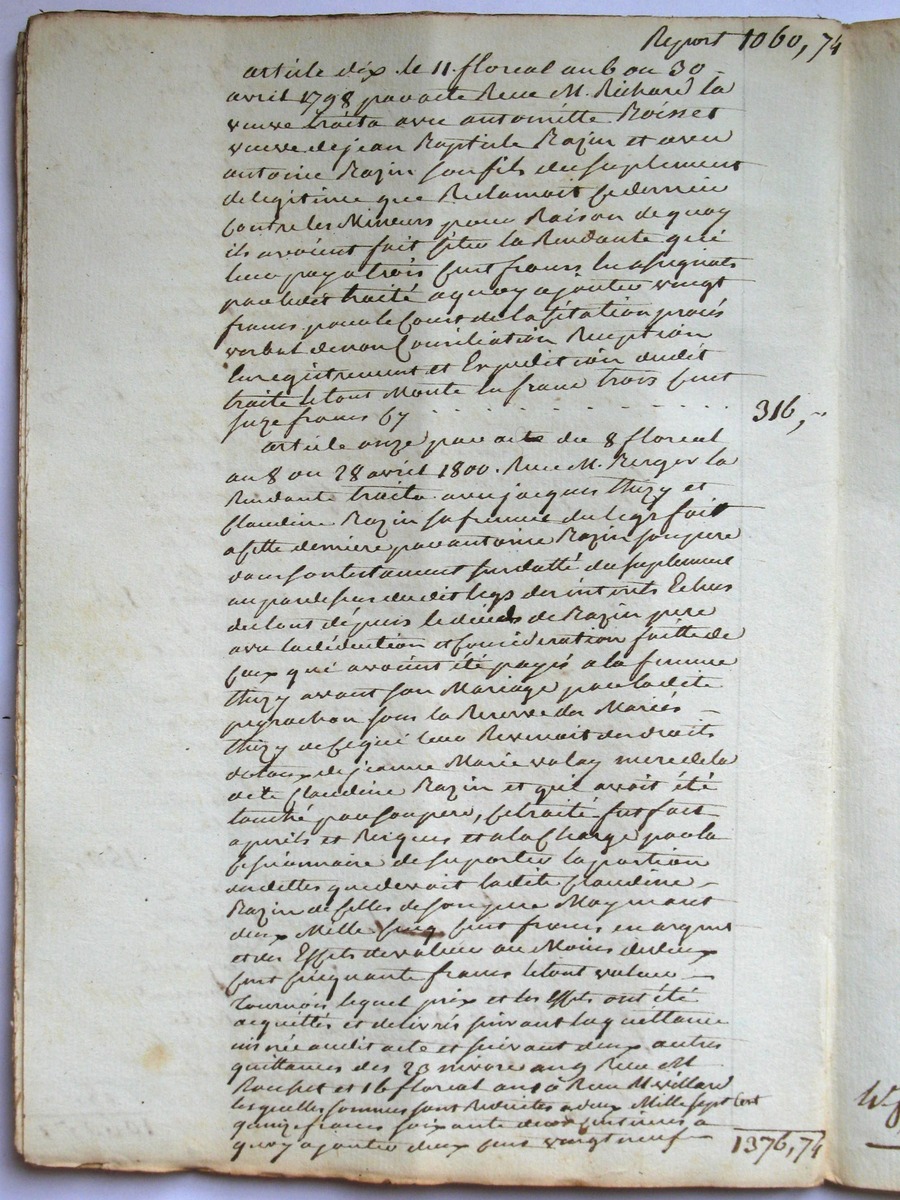 Report 1060,74
article dix le 11 floreal an 6 ou 30
avril 1798 par acte Recu M. Richard la
veuve traita avec antoinette Boisset
veuve de jean Baptiste Bazin et avec
antoine Bazin son fils du suplement
de legitime que Reclamoit ce dernier
Contre les Mineurs pour Raison de quoy
ils avoient fait siter la Rendante qui
leur paya trois Cent francs en assignats
par ledit traité a quoy ajouter vingt
francs pour le Cout de la sitation procés
verbal de non Conciliation Reception
Enregistrement et Expedition dudit
traité le tout Monte en franc trois Cent
seize francs 67 . . . . . . . . . . . 316,"
article onze par acte du 8 floreal
an 8 ou 28 avril 1800. Recu M. Berger la
Rendante traita avec jacques thizy et
Claudine Bazin sa femme du legs fait
a cette derniere par antoine Bazin son pere
dans son testament susdatté du suplement
au par dessus dudit legs des interets Echus
du tout dépuis le décéds de Bazin pere
avec la déduction et Considération faitte de
Ceux qui avoient été payés a la femme
thizy avant son Mariage par la dite
peyrachon sous la Reserve des Mariés
thizy de Ce qui leur Revenoit des droits
dotaux de jeanne Marie valay mere de la
dite Claudine Bazin et qui avoit été
touché par son pere, Ce traité fut fait
a perils et Risques et a la Charge par la
Cessionnaire de suporter la portion
des dettes que devoit ladite Claudine
Bazin de Celles de son pere Moyenant
deux Mille Cinq Cent francs en argent
et des Effets de valeur au Moins de deux
Cent Cinquante francs le tout valeur
Tournois lequel prix et les Effets ont été
acquittés et delivrés suivant la quittance
inserée audit acte et suivant deux autres
quittances des 23 nivose an 9 Recu M
Rouset et 16 floreal an 10 Recu M villard
lesquelles sommes sont Reduites a deux Mille sept Cent
quinze francs soixante deux Centimes a
quoy ajouter deux Cent vingt neuf
1376,74